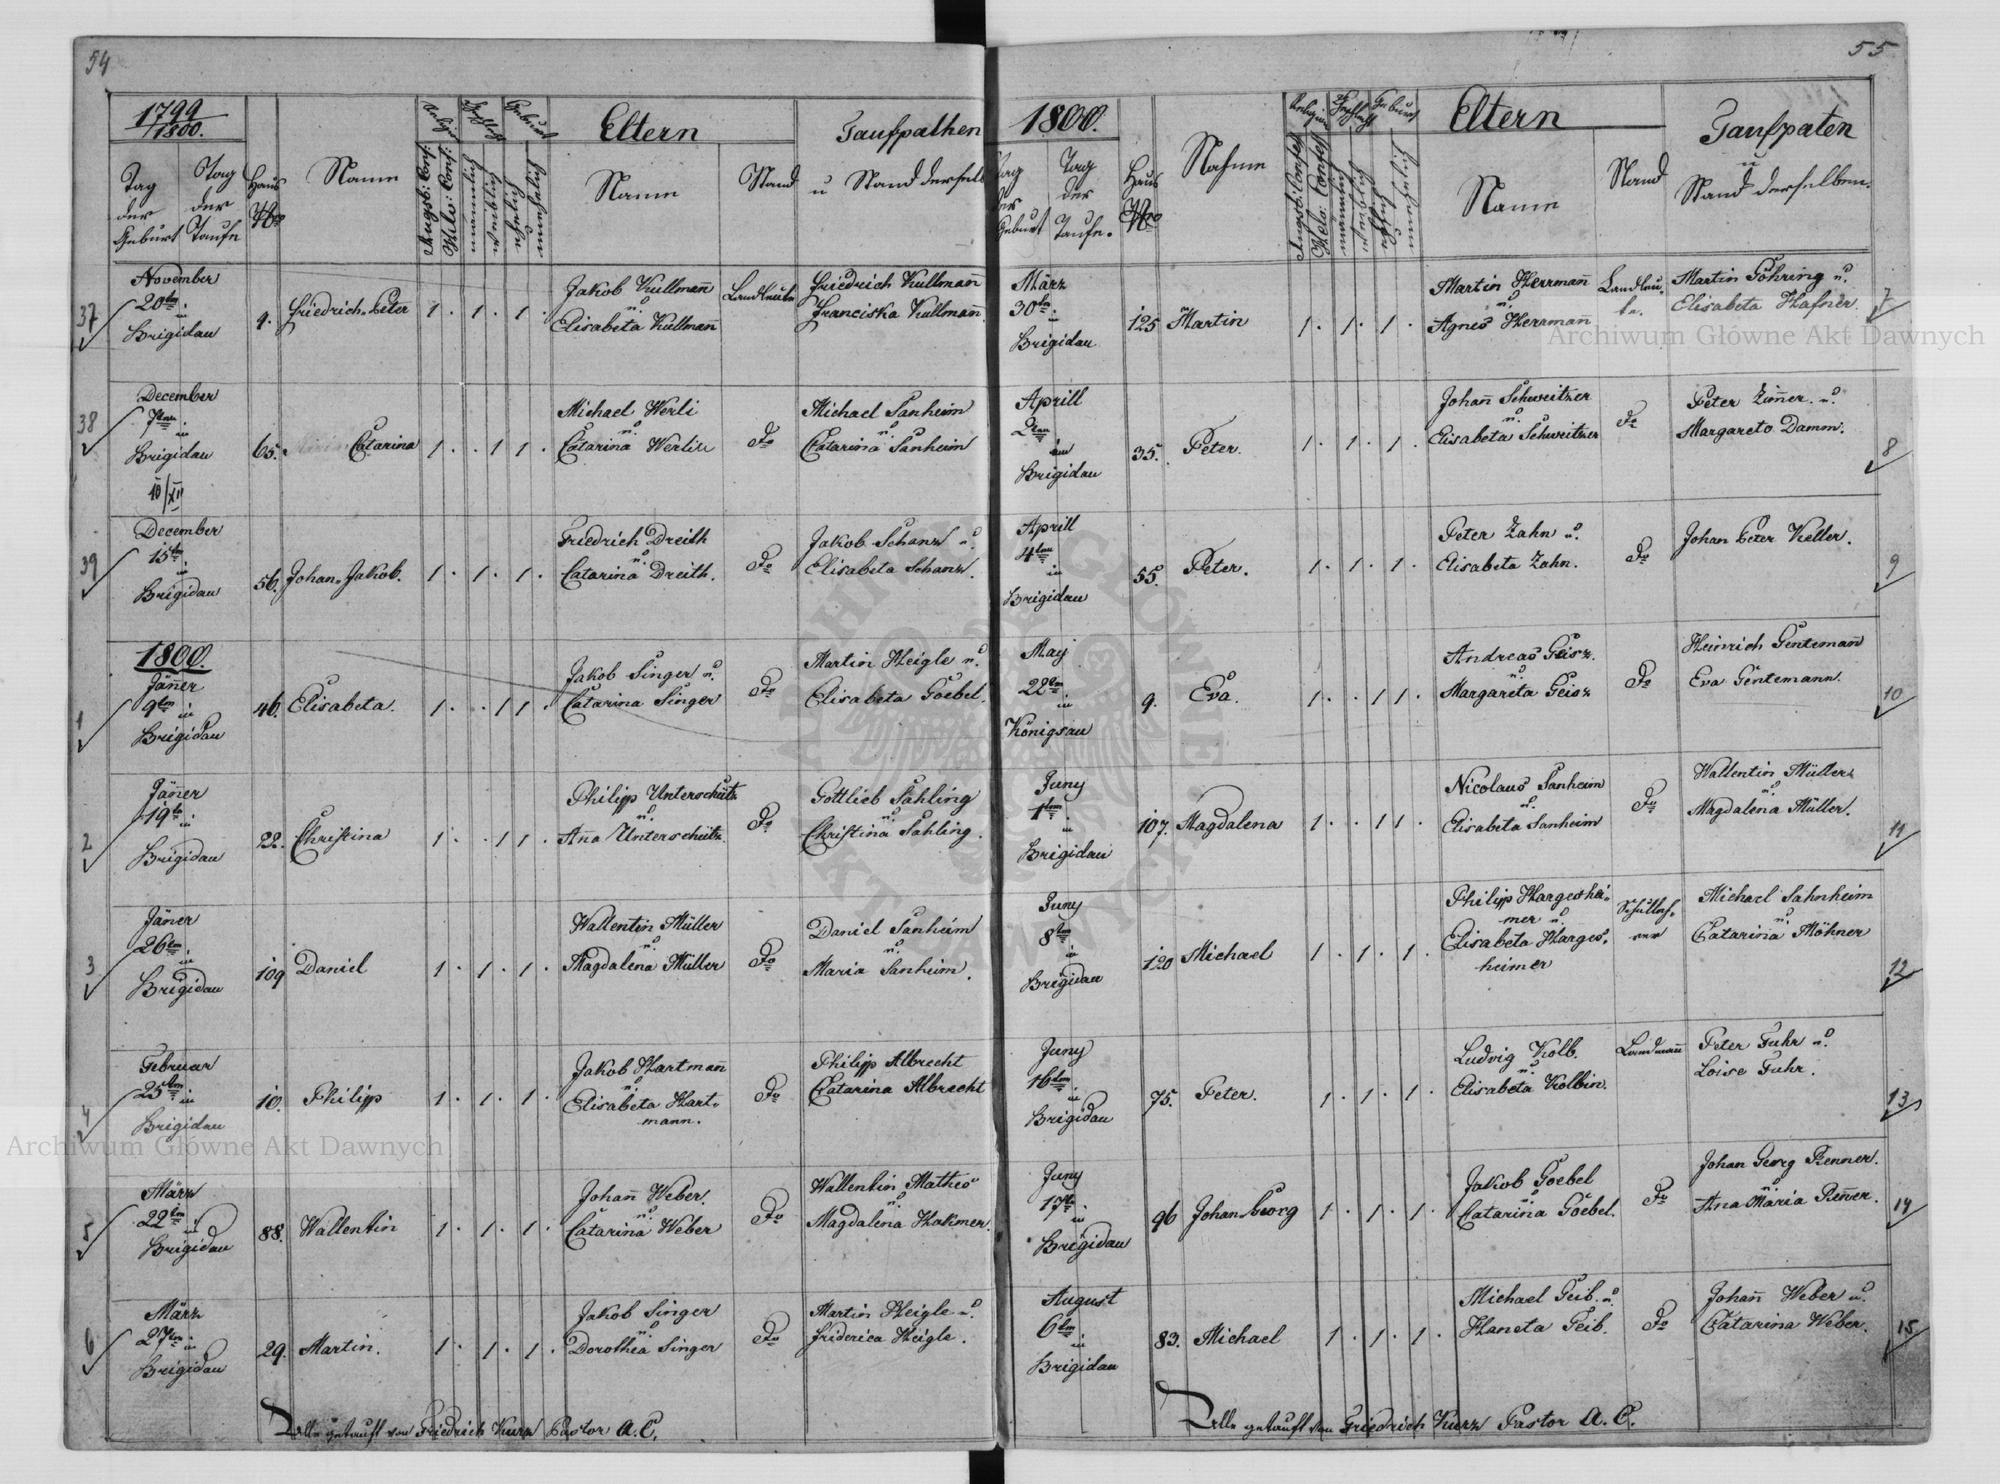 54
1799
1800.
Tag
der
Geburt
Tag
der
Taufe
Haus
Nro
Name
Religion
Augsb: Conf:
Helv: Conf:
Geschlecht
männlich
weiblich
Geburt
ehelich
unehelich
Eltern
Name
Stand
Taufpathen
u Stand derselb
37
November
20tn
in
Brigidau
9.
Friedrich Peter
1 . 1 . 1 .
Jakob Kullmañ
u.
Elisabeta Kullmañ
Landleute
Friedrich Kullmañ
Franciska Kullmañ.
38
December
7ten
in
Brigidau
10/XII
65.
Catarina
1 . . 1 1 .
Michael Werli
u.
Catarina Werlin
do
Michael Sanheim
u.
Catarina Sanheim
39
December
15tn
in
Brigidau
56.
Johan Jakob.
1 . 1 . 1 .
Friedrich Dreith
u.
Catarina Dreith.
do
Jakob Schanz u.
Elisabeta Schanz.
1800.
1
Jäñer
9tn in
Brigidau
46.
Elisabeta.
1 . . 1 1 .
Jakob Singer u.
Catarina Singer
do
Martin Heigle u.
Elisabeta Goebel.
2
Jäñer
19tn in
Brigidau
22.
Christina
1 . . 1 1 .
Philipp Unterschütz
u.
Ana Unterschütz.
do
Gottlieb Sahling
u.
Christina Sahling.
3
Jäner
26tn
in
Brigidau
109
Daniel
1 . 1 . 1 .
Wallentin Müller
u.
Magdalena Müller
do
Daniel Sanheim
u.
Maria Sanheim.
4
Februar
25ten
in
Brigidau
10.
Philipp
1 . 1 . 1 .
Jakob Hartmañ
u.
Elisabeta Hart-
mann.
do
Philipp Albrecht
Catarina Albrecht
5
März
22tn
in
Brigidau
88.
Wallentin
1 . 1 . 1 .
Johañ Weber.
u.
Catarina Weber
do
Wallentin Matheo
u.
Magdalena Hakmer.
6
März
27tn in
Brigidau
29.
Martin.
1 . 1 . 1 .
Jakob Singer
u.
Dorothea Singer
do
Martin Heigle u.
Friderica Heigle.
Alle getauft von Friedrich Kurz Pastor A. C.
55
1800.
Tag
der
Geburt
Tag
der
Taufe.
Haus
Nro
Nahme
Religion
Augsb: Confess
Helv: Confess
Geschlecht
männlich
weiblich
Geburt
ehelich
unehelich
Eltern
Name
Stand
Taufpaten
u
Stand derselben.
März
30tn
in
Brigidau
125
Martin
1 . 1 . 1 .
Martin Herrmañ
u.
Agnes Herrmañ
Landleu-
te.
Martin Föhring u.
Elisabeta Hafner.
7
Aprill
2ten
in
Brigidau
35.
Peter.
1 . 1 . 1 .
Johañ Schweitzer
u.
Elisabeta Schweitzer
do
Peter Zim̃er. u.
Margareto Damm.
8
Aprill
4ten
in
Brigidau
55.
Peter.
1 . 1 . 1 .
Peter Zahn u.
Elisabeta Zahn.
do
Johan Peter Keller.
9
May
22tn
in
Königsau
9.
Eva.
1 . . 1 1 .
Andreas Geisz.
u.
Margareta Geisz
do
Heinrich Gentemañ
Eva Gentemann.
10
Juny
1ten
in
Brigidau
107.
Magdalena
1 . . 1 1 .
Nicolaus Sanheim
u.
Elisabeta Sanheim
do
Wallentin Müller
u.
Magdalena Müller.
11
Juny
8ten
in
Brigidau
120
Michael
1 . 1 . 1 .
Philipp Hargeshei-
mer u.
Elisabeta Harges-
heimer
Schulleh-
rer
Michael Sahnheim
u.
Catarina Möhner
12
Juny
16ten
in
Brigidau
75.
Peter.
1 . 1 . 1 .
Ludvig Kolb.
u.
Elisabeta Kolbin.
Landmañ
Peter Fuhr u.
Loise Fuhr.
13
Juny
17tn
in
Brigidau
96
Johan Georg
1 . 1 . 1 .
Jakob Goebel
u.
Catarina Goebel.
do
Johan Georg Renner.
u.
Ana Maria Reñer.
14
August
6tn
in
Brigidau
83.
Michael
1 . 1 . 1 .
Michael Geib. u.
Haneta Geib.
do
Johañ Weber u.
Catarina Weber.
15
Alle getauft von Friedrich Kurz Pastor A. C.
Archiwum Główne Akt Dawnych
Archiwum Główne Akt Dawnych
ARCHIWUM GŁÓWNE AKT DAWNYCH